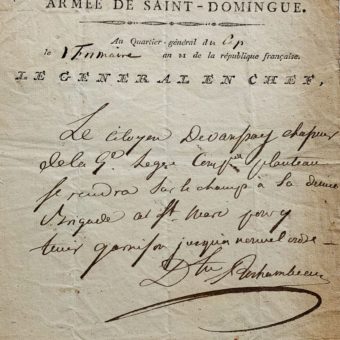 ARMÉE DE SAINT-DOMINGUE.
Au Quartier-général du Cap
le 1 Frimaire an 11 de la république française.
LE GÉNÉRAL EN CHEF,
Le citoyen chasseur
de la Gde
se rendra sur le champ à Sa demie
Brigade at St. Marc pour y
tenir garnison jusqu'a nouvel ordre
Dte Rochambeau